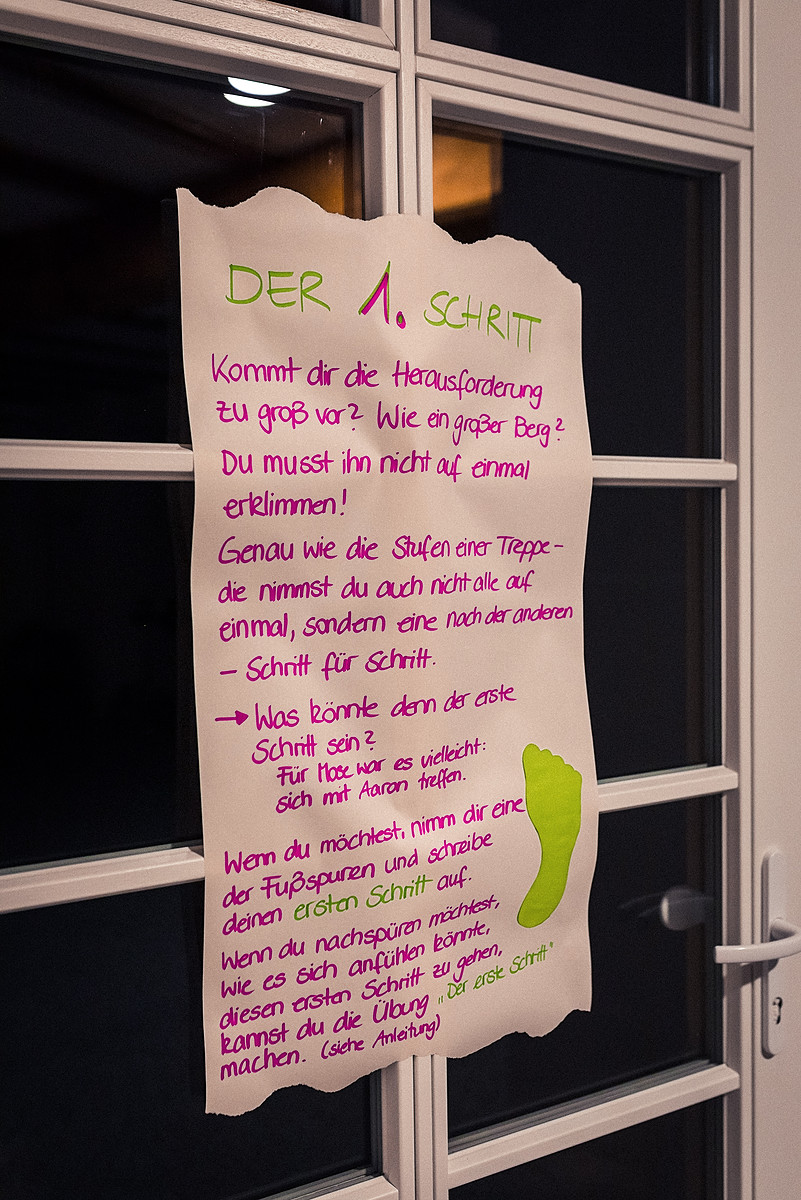 DER 1. SCHRITT
Kommt dir die Herausforderung
zu groß vor? Wie ein großer Berg?
Du musst ihn nicht auf einmal
erklimmen!
Genau wie die Stufen einer Treppe –
die nimmst du auch nicht alle auf
einmal, sondern eine nach der anderen
– Schritt für Schritt.
→ Was könnte denn der erste
Schritt sein?
Für Mose war es vielleicht:
sich mit Aaron treffen.
Wenn du möchtest, nimm dir eine
der Fußspuren und schreibe
deinen ersten Schritt auf.
Wenn du nachspüren möchtest,
wie es sich anfühlen könnte,
diesen ersten Schritt zu gehen,
kannst du die Übung „Der erste Schritt“
machen. (siehe Anleitung)